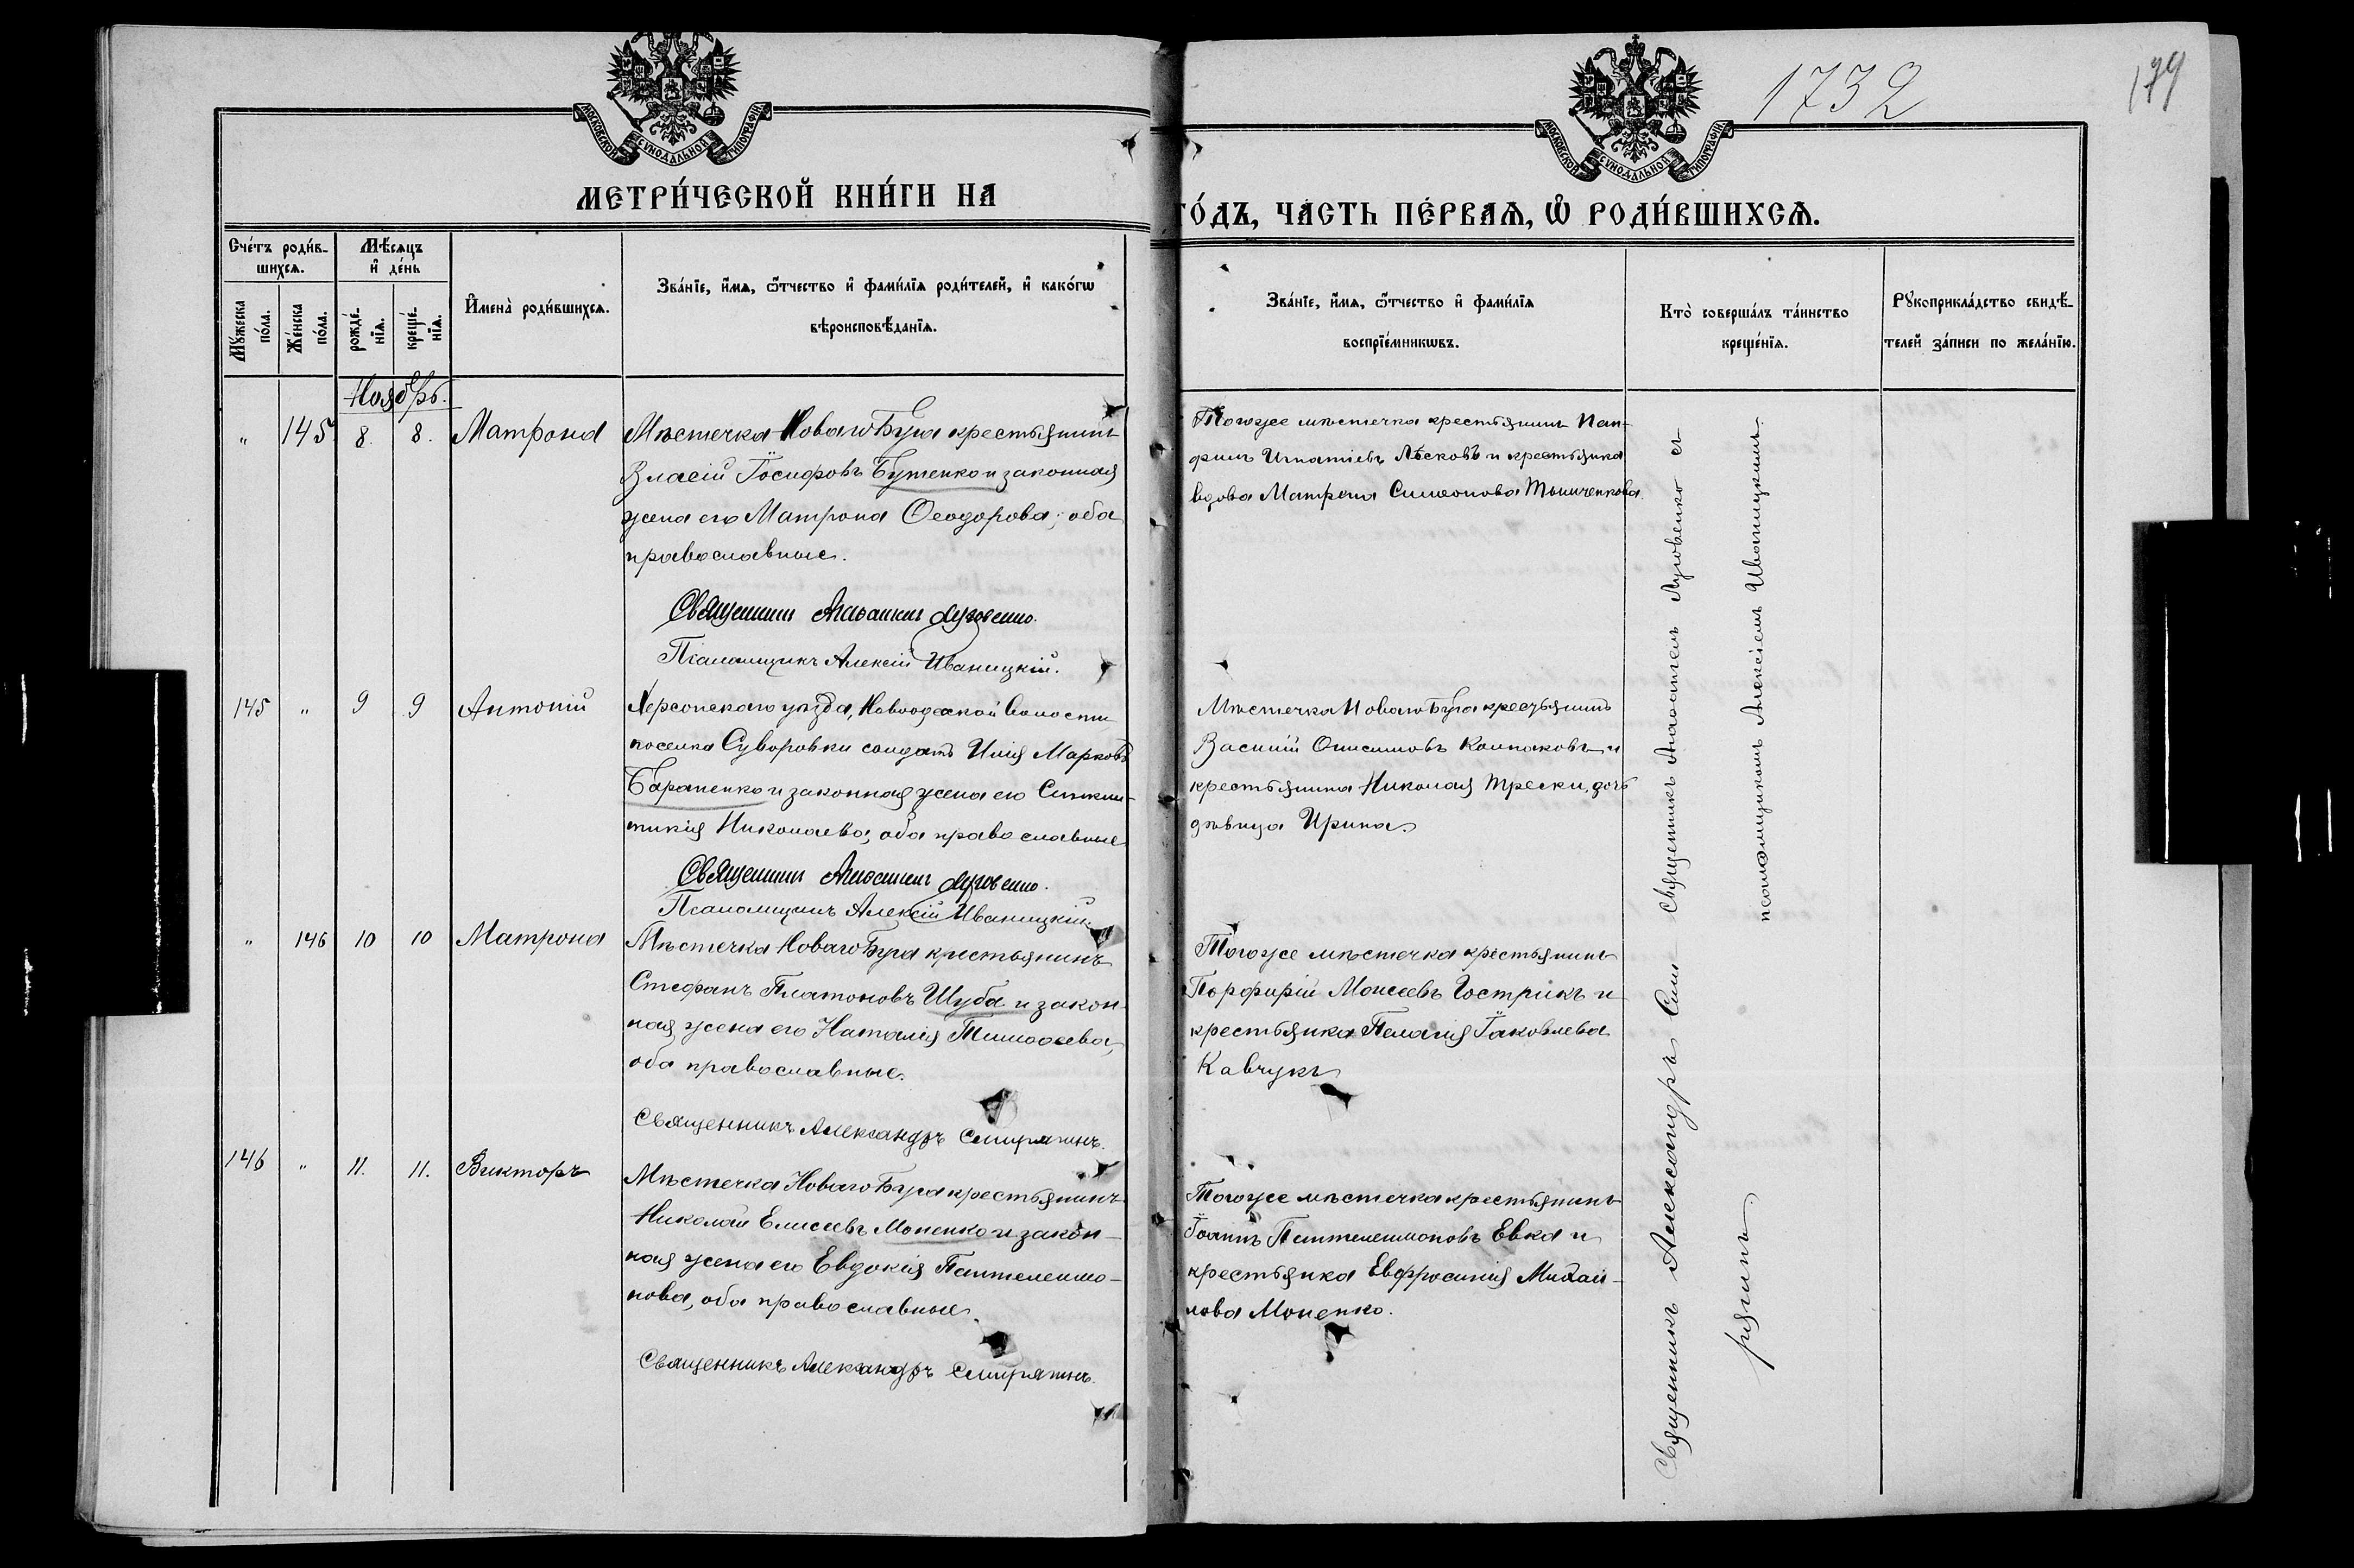 1732
179
МОСКОВСКОЙ СѴНОДАЛЬНОЙ ТИПОГРАФІИ
МОСКОВСКОЙ СѴНОДАЛЬНОЙ ТИПОГРАФІИ
МЕТРИ́ЧЕСКОЙ КНИ́ГИ НА
ГО́ДЪ, ЧА́СТЬ ПЕ́РВАѦ, Ѽ РОДИ́ВШИХСѦ.
Сче́тъ роди́в-
шихсѧ.
Мꙋ́жеска по́ла.
Же́нска по́ла.
Мѣ́сѧцъ
и҆ де́нь
рожде́-
нїѧ.
креще́-
нїѧ.
И҆мена̀ роди́вшихсѧ.
Зва́нїе, и҆́мѧ, ѻ҆́тчество и҆ фами́лїѧ роди́телей, и҆ како́гѡ
вѣроисповѣ́данїѧ.
Зва́нїе, и҆́мѧ, ѻ҆́тчество и҆ фами́лїѧ
воспрїе́мникѡвъ.
Кто̀ соверша́лъ та́инство
креще́нїѧ.
Рꙋкоприкла́дство свидѣ́-
телей за́писи по жела́нїю.
Ноябрь.
" 145 8. 8. Матрона
Мѣстечка Новаго Буга крестьянинъ
Власій Іосифовъ Бутенко и законная
жена его Матрона Ѳеодорова, оба
православные.
Священникъ Анѳапкинъ Луговенко.
Псаломщикъ Алексій Иваницкій.
Тогоже мѣстечка крестьянинъ Пан-
филъ Игнатіевъ Лѣсковъ и крестьянка
вдова Матрена Симеонова
145 " 9 9 Антоній
Херсонскаго уѣзда, Новоодесской волости
поселка Суворовки солдатъ Илія Марковъ
Бараненко и законная жена его Синкли-
тикія Николаева, оба православные
Священникъ Луговенко.
Псаломщикъ Алексій Иваницкій.
Мѣстечка Новаго Буга крестьянинъ
Василій Онисимовъ Колпаковъ и
крестьянина Николая Трески, дочь
дѣвица Ирина.
" 146 10 10 Матрона
Мѣстечка Новаго Буга крестьянинъ
Стефанъ Платоновъ Шуба и закон-
ная жена его Наталія Тимоѳеева,
оба православные.
Священникъ Александръ Смирягинъ.
Тогоже мѣстечка крестьянинъ
Порфирій Моисеевъ Гострикъ и
крестьянка Пелагія Іаковлева
Кавчукъ
146 " 11. 11. Викторъ
Мѣстечка Новаго Буга крестьянинъ
Николай Елисеевъ Моненко и закон-
ная жена его Евдокія Пантелеимо-
нова, оба православные.
Священникъ Александръ Смирягинъ.
Тогоже мѣстечка крестьянинъ
Іоаннъ Пантелеимоновъ Евка и
крестьянка Евфросинія Михай-
лова Моненко.
Священникъ Луговенко съ
псаломщикомъ Алексіемъ Иваницкимъ.
Священникъ Александръ Сми-
рягинъ.